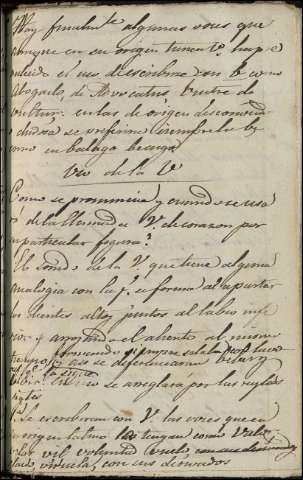 Hay finalmte algunas voces que
aunque en su origen tienen V. ha pre
valecido el uso de escribirse con b como
Abogado, de Advocatus Buitre de
Vultur: en las de origen desconocido
o dudoso se preferirá siempre la b
como en balago
Uso de la V
Como se pronuncia y cuando se usa
rá de la llamada V. de corazon por
su particular figura?
El sonido de la V. que tiene alguna
analogia con la f. se forma al apartar
los dientes altos juntos al labio infe
rior y arrojando el aliento al mismo
tiempo
se arreglara por las reglas
sigtes
1ª. Se escribiran con V. las voces que en
su origen latino la tengan como Vale
lor vil voluntad vuelo con sus derivados
viruela, con sus derivados